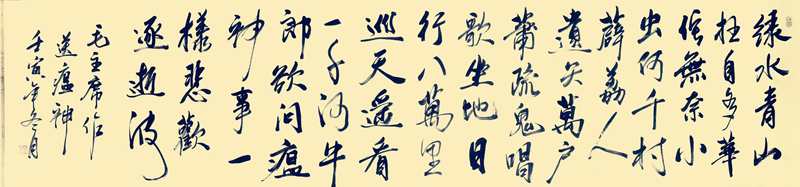 綠水青山
枉自多華
佗無奈小
虫何千村
薜荔人
遺矢萬户
蕭疏鬼唱
歌坐地日
行八萬里
巡天遥看
一千河牛
郎欲问瘟
神事一
樣悲歡
逐逝波
毛主席作
送瘟神
壬寅年冬月